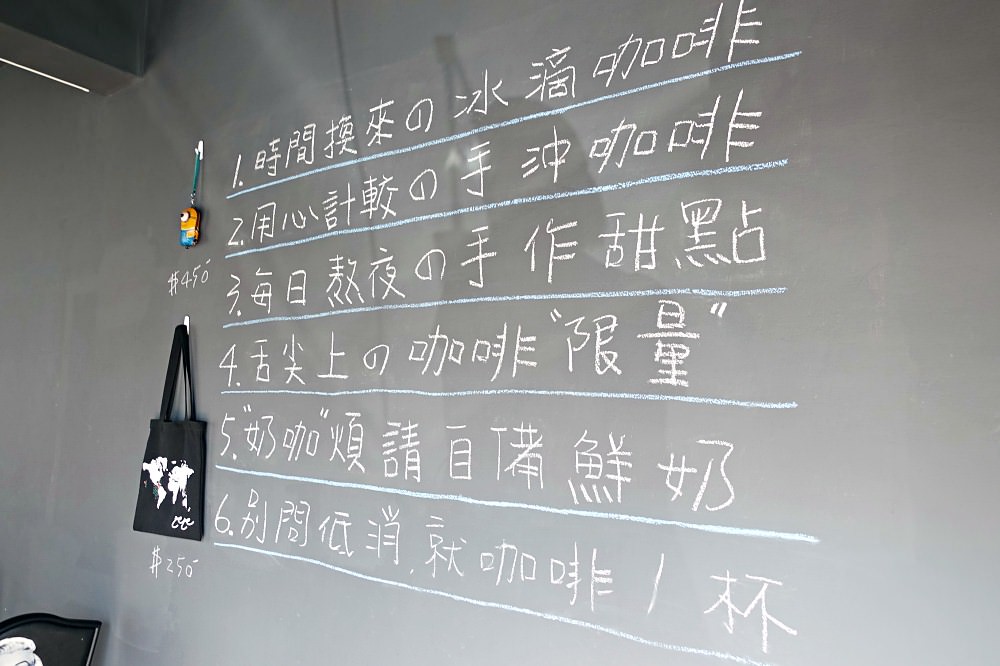 1.時間換來の冰滴咖啡
2.用心計較の手沖咖啡
3.每日熬夜の手作甜點
4.舌尖上の咖啡"限量"
5."奶咖"煩請自備鮮奶
6.別問低消,就咖啡1杯
$450
$250